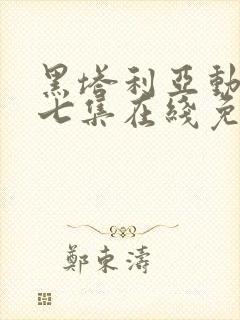 黑塔利亞動
七集在綫免
鄭東濤